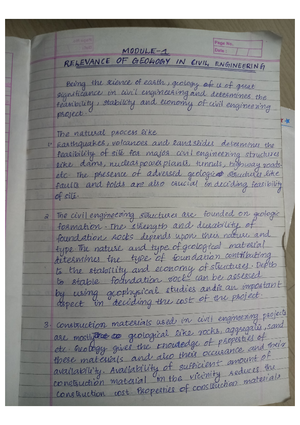 Page No.
Date
MODULE-1
RELEVANCE OF GEOLOGY IN CIVIL ENGINEERING
Being the science of earth, geology is of great
significance in civil engineering and determines the
feasibility, stability and economy of civil engineering
project.
The natural process like
1. Earthquakes, volcanoes and landslides determines the
feasibility of site for major civil engineering structures
like dams, nuclear power plants, tunnels, highway roads
etc. The presence of adressed geological structures like
fault and folds are also crucial in deciding feasibility
of site
2. The civil engineering structures are founded on geologic
formation. The strength and durability of
foundation rocks depend upon their nature and
type. The nature and type of geological material
determines the type of foundation contributing
to the stability and economy of structures. Depth
to stable foundation rocks can be assessed
by using geophysical studies and is an important
aspect in deciding the cost of the project
3. Construction materials used in civil engineering projects
are mostly geological like rocks, aggregate, sand
etc. Geology gives the knowledge of properties of
these materials and also their occurance and their
availability. Availability of sufficient amount of
construction material in the vicinity reduces the
construction cost. Properties of construction materials